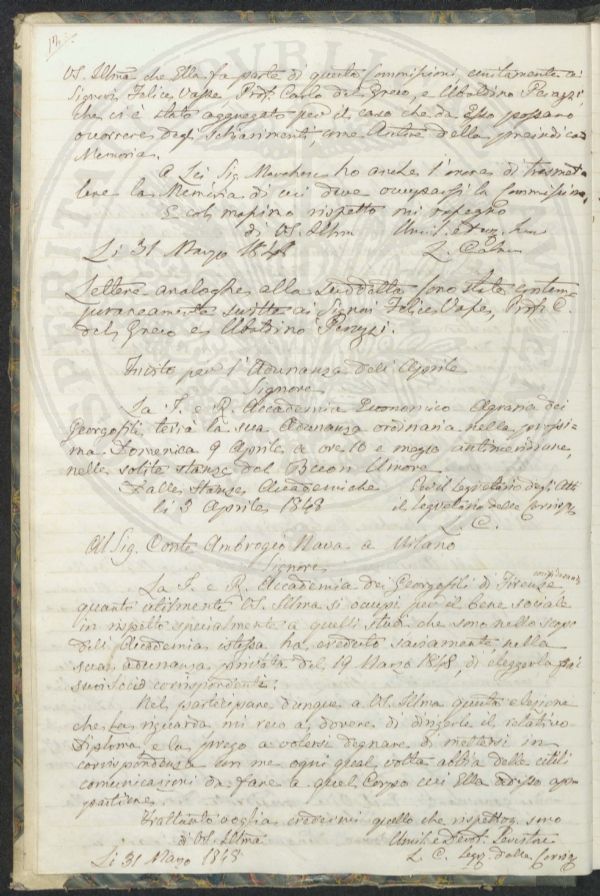 VS. Illma che Ella fa parte di questa Commissione, unitamente ai
Signori Felice Vasse, Prof. Carlo del Greco, e Ubaldino Peruzzi,
che ci è stato aggregato per il caso che da Esso possano
occorrere degli schiarimenti, come Autore della
Memoria.
A Lei Sig. Marchese ho anche l'onore di trasmet-
tere la Memoria di cui deve occuparsi la Commissione,
E col massimo rispetto mi rassegno
di VS. Illma
Li 31 Marzo 1848
Lettere analoghe alla suddetta sono state contem-
poraneamente scritte ai Signori Felice Vasse, Prof. C.
del Greco e Ubaldino Peruzzi.
Invito per l'Adunanza dell' Aprile
Signore
La I. e R. Accademia Economico Agraria dei
Georgofili, terrà la sua Adunanza ordinaria nella prossi-
ma Domenica 9 Aprile a ore 10 e mezzo antimeridiane,
nelle solite stanze del Buon Umore
Dalle Stanze Accademiche Per il Segretario degli Atti
li 3 Aprile 1848 il Segretario delle Corrisp.
L. C.
Al Sig. Conte Ambrogio Nava a Milano
Signore
La I. e R. Accademia dei Georgofili di Firenze considerando
quanto utilmente VS. Illma si occupi per il bene sociale
in rispetto specialmente a quelli studi che sono nello scopo
dell'Accademia istessa ha creduto saviamente nella
sua adunanza privata del 19 Marzo 1848, di eleggerla fra i
suoi Socj corrispondenti.
Nel partecipare dunque a VS. Illma questa elezione
che La riguarda mi reco a dovere di dirigerle il relativo
Diploma, e la prego a volersi degnare di mettersi in
corrispondenza con me ogni qual volta abbia delle utili
comunicazioni da fare a quel Corpo cui Ella adesso ap-
partiene.
Frattanto voglia credermi quello che rispettos. sono
di VS. Illma
Li 31 Marzo 1848 L. C. Segr. delle Corrisp.